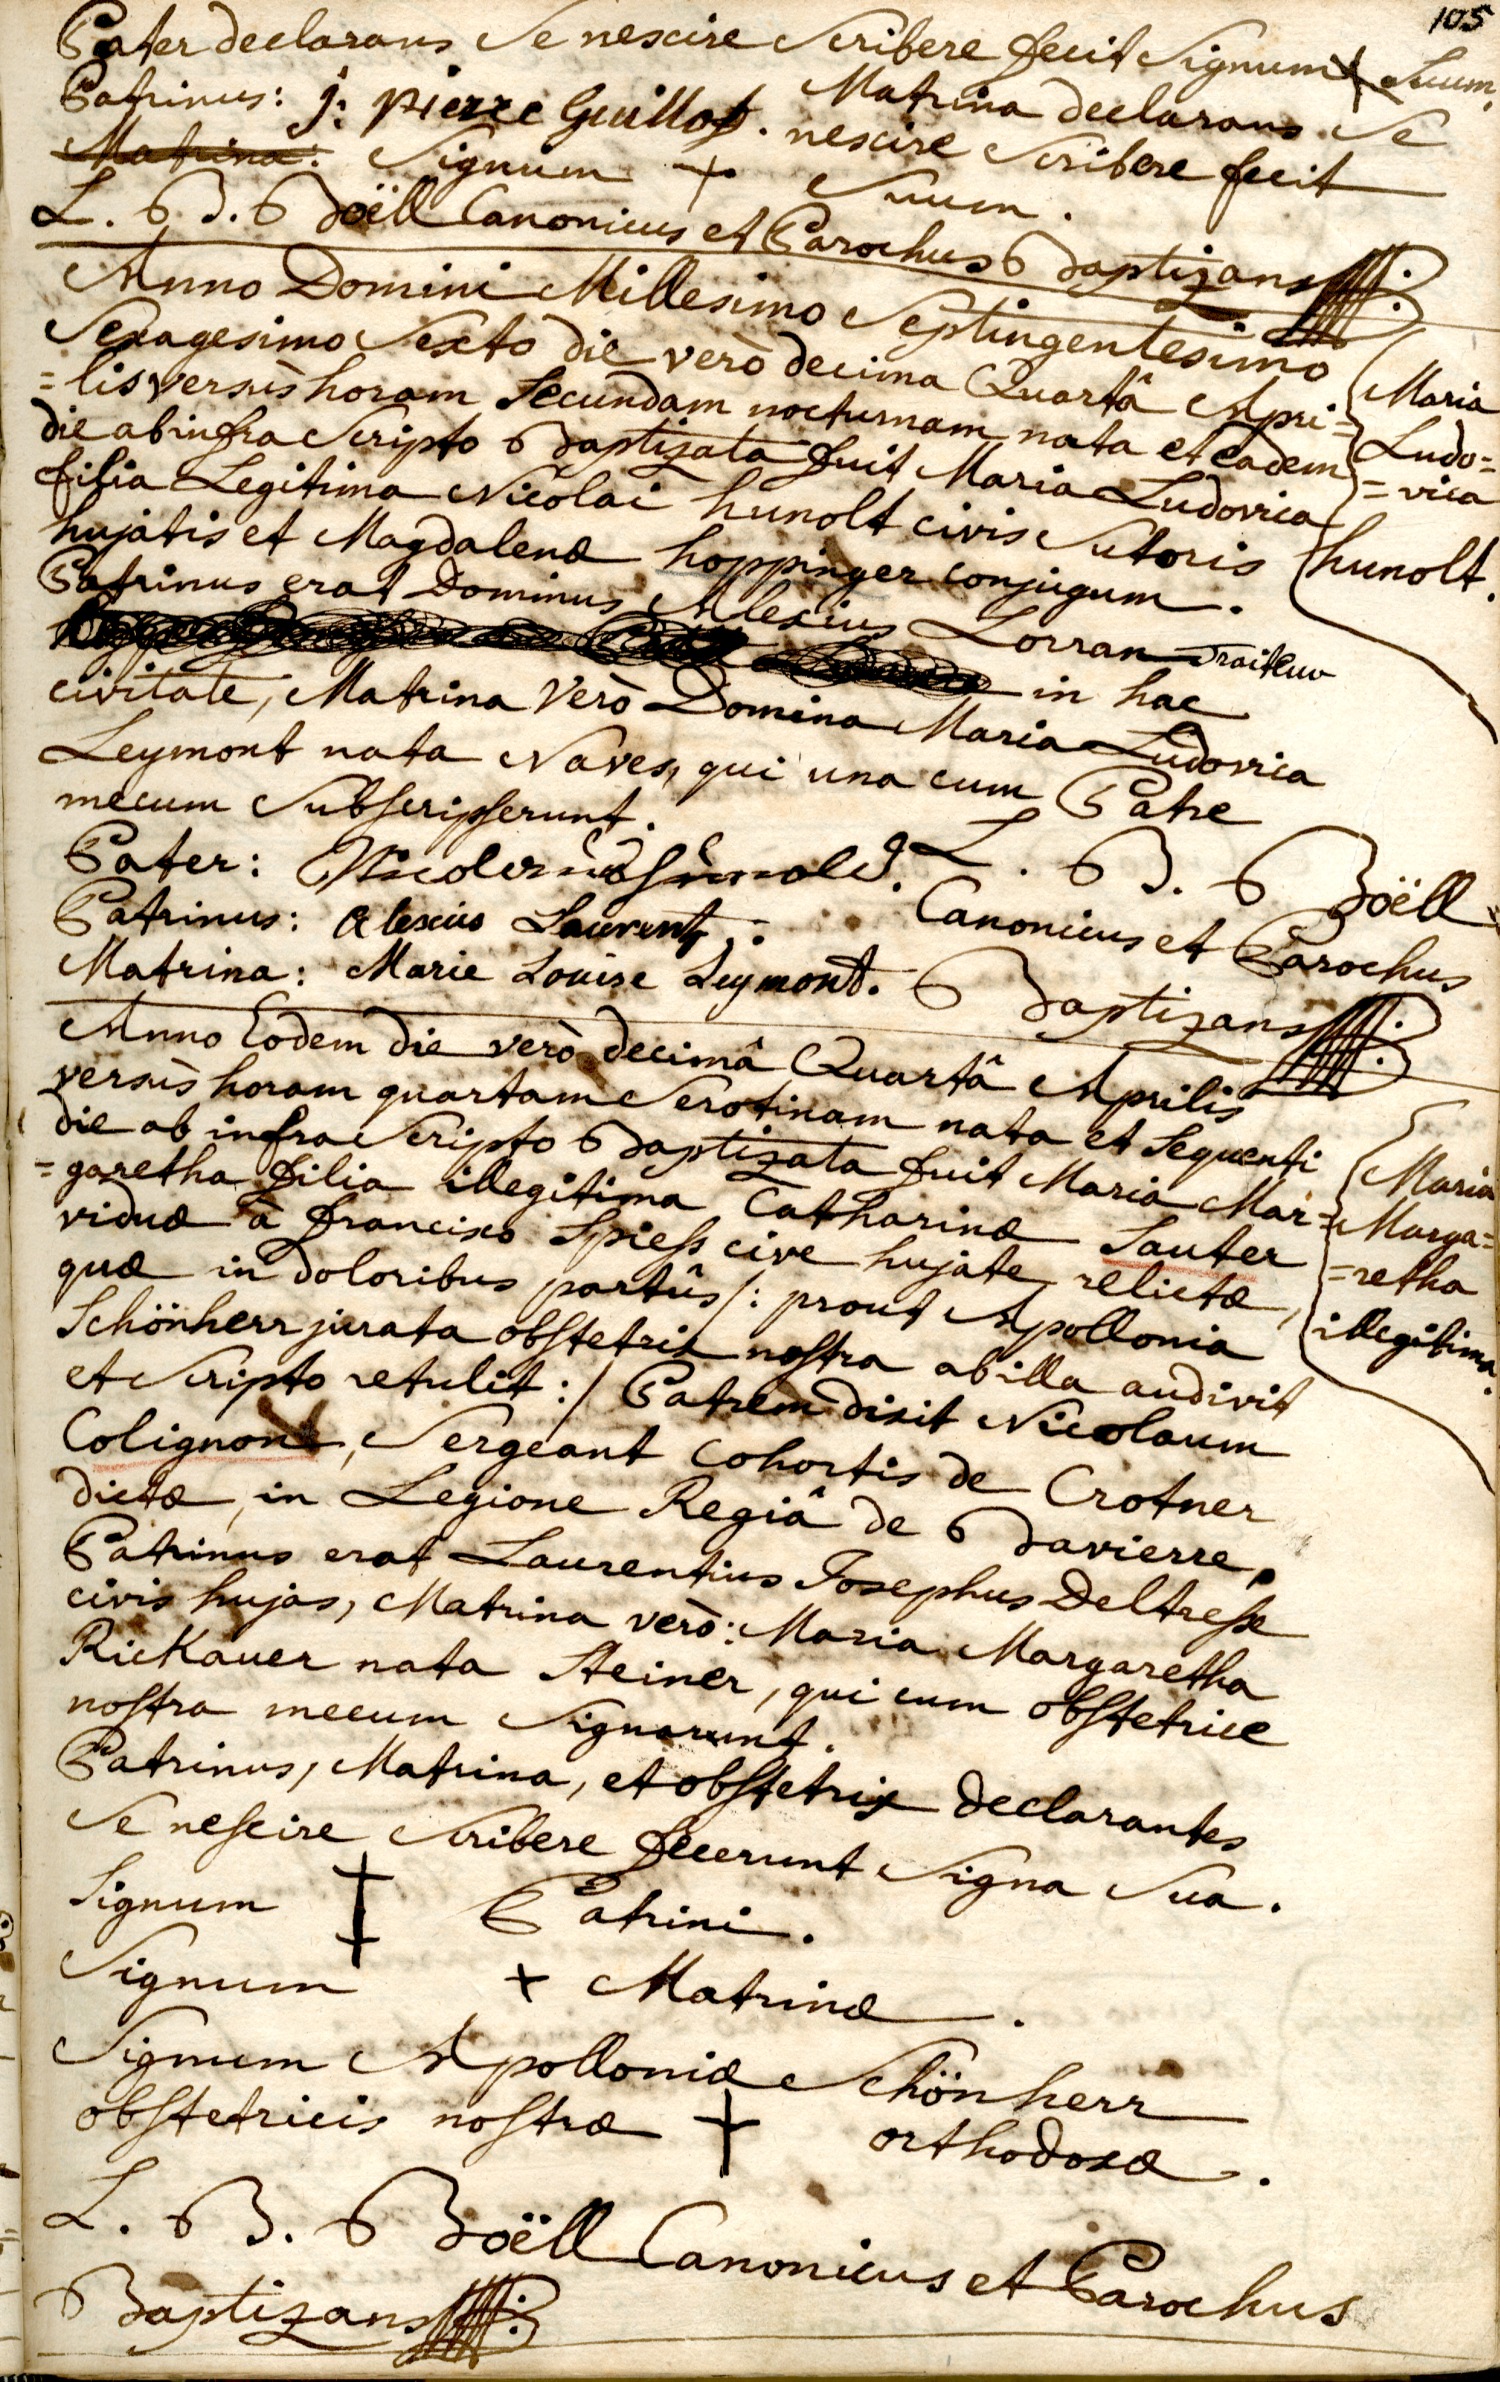 105
Pater declarans Se nescire Scribere fecit Signum + Suum.
Patrinus: j: pierre Guillot. Matrina declarans Se
Matrina: nescire Scribere fecit
Signum + Suum.
L. B. Boëll Canonicus et Parochus Baptizans
Anno Domini Millesimo Septingentesimo
Sexagesimo Sexto die verò decima Quartâ Apri=
=lis versùs horam Secundam nocturnam nata et eadem
die ab infra Scripto Baptizata fuit Maria Ludovica
filia Legitima Nicolai hunolt civis Sutoris
hujatis et Magdalenæ hoppinger conjugum.
Patrinus erat Dominus Alexius Lorran Traiteur
in hac
civitate, Matrina Verò Domina Maria Ludovica
Leymont nata Naves, qui una cum Patre
mecum Subscripserunt.
Maria
Ludo=
=vica
hunolt.
Pater:
Patrinus: alexius Laurent.
Matrina: Marie Louise Leymont.
L. B. Boëll
Canonicus et Parochus
Baptizans
Anno Eodem die verò decimâ Quartâ Aprilis
versùs horam quartam Serotinam nata et Sequenti
die ab infra Scripto Baptizata fuit Maria Mar=
=garetha filia illegitima Catharinæ Sauter
viduæ à francisco Spieß cive hujate relictæ,
quæ in doloribus partûs /: prout Apollonia
Schönherr jurata obstetrix nostra ab illa audivit
et Scripto retulit :/ Patrem dixit Nicolaum
Colignon, Sergeant Cohortis de Crotner
dictæ, in Legione Regiâ de Bavierre.
Patrinus erat Laurentius Josephus Deltresse
civis hujas, Matrina verò: Maria Margaretha
Rickauer nata Steiner, qui cum obstetrice
nostra mecum Signarunt.
Maria
Marga=
=retha
illegitima.
Patrinus, Matrina, et obstetrix declarantes
Se nescire Scribere fecerunt Signa Sua.
Signum + Patrini.
Signum + Matrinæ.
Signum Apolloniæ Schönherr
obstetricis nostræ + orthodoxæ.
L. B. Boëll Canonicus et Parochus
Baptizans